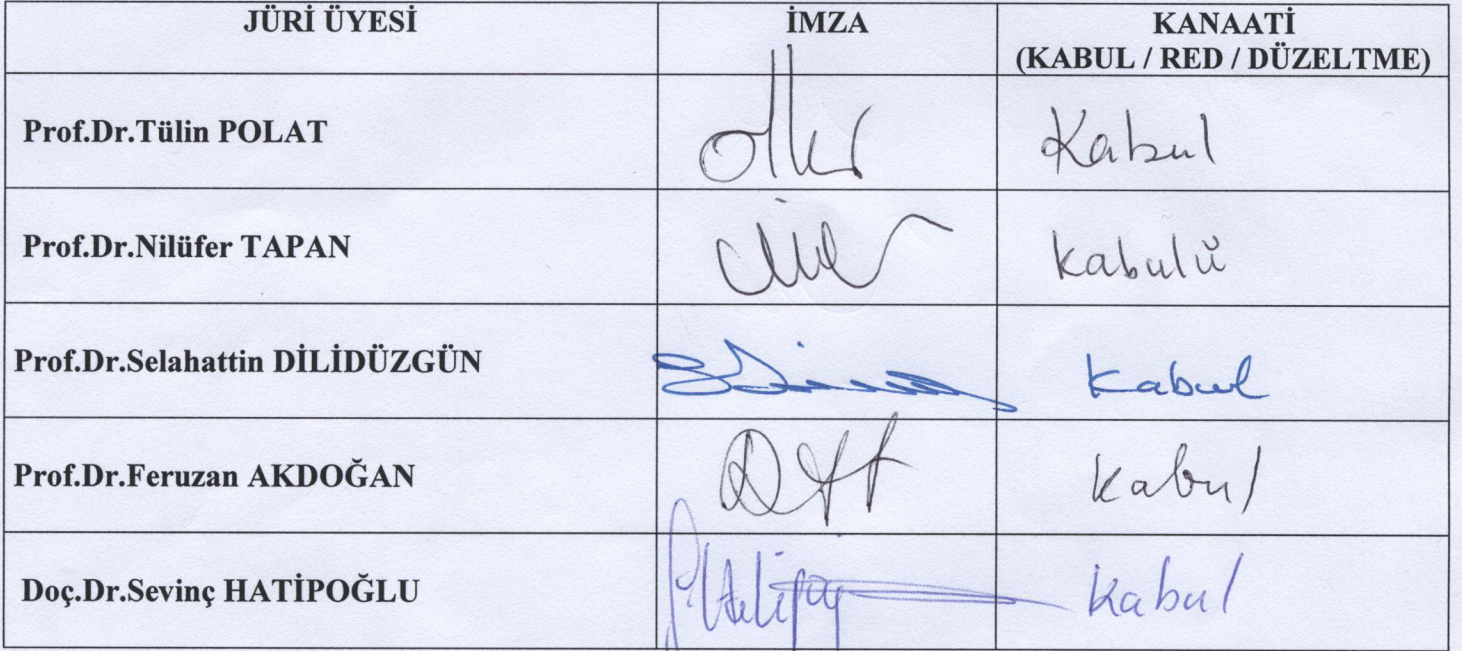 JÜRİ ÜYESİ İMZA KANAATİ
(KABUL / RED / DÜZELTME)
Prof.Dr.Tülin POLAT Kabul
Prof.Dr.Nilüfer TAPAN kabulü
Prof.Dr.Selahattin DİLİDÜZGÜN Kabul
Prof.Dr.Feruzan AKDOĞAN Kabul
Doç.Dr.Sevinç HATİPOĞLU Kabul